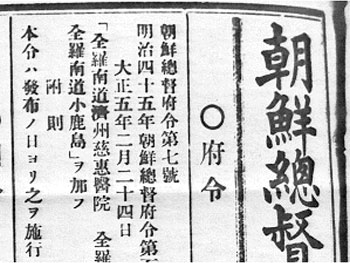 朝鮮總督
〇府令
朝鮮總督府令第七號
明治四十五年朝鮮總督府令第
大正五年二月二十四日
「全羅南道濟州慈惠醫院 全羅
全羅南道小鹿島」ヲ加フ
附則
本令ハ發布ノ日ヨリ之ヲ施行